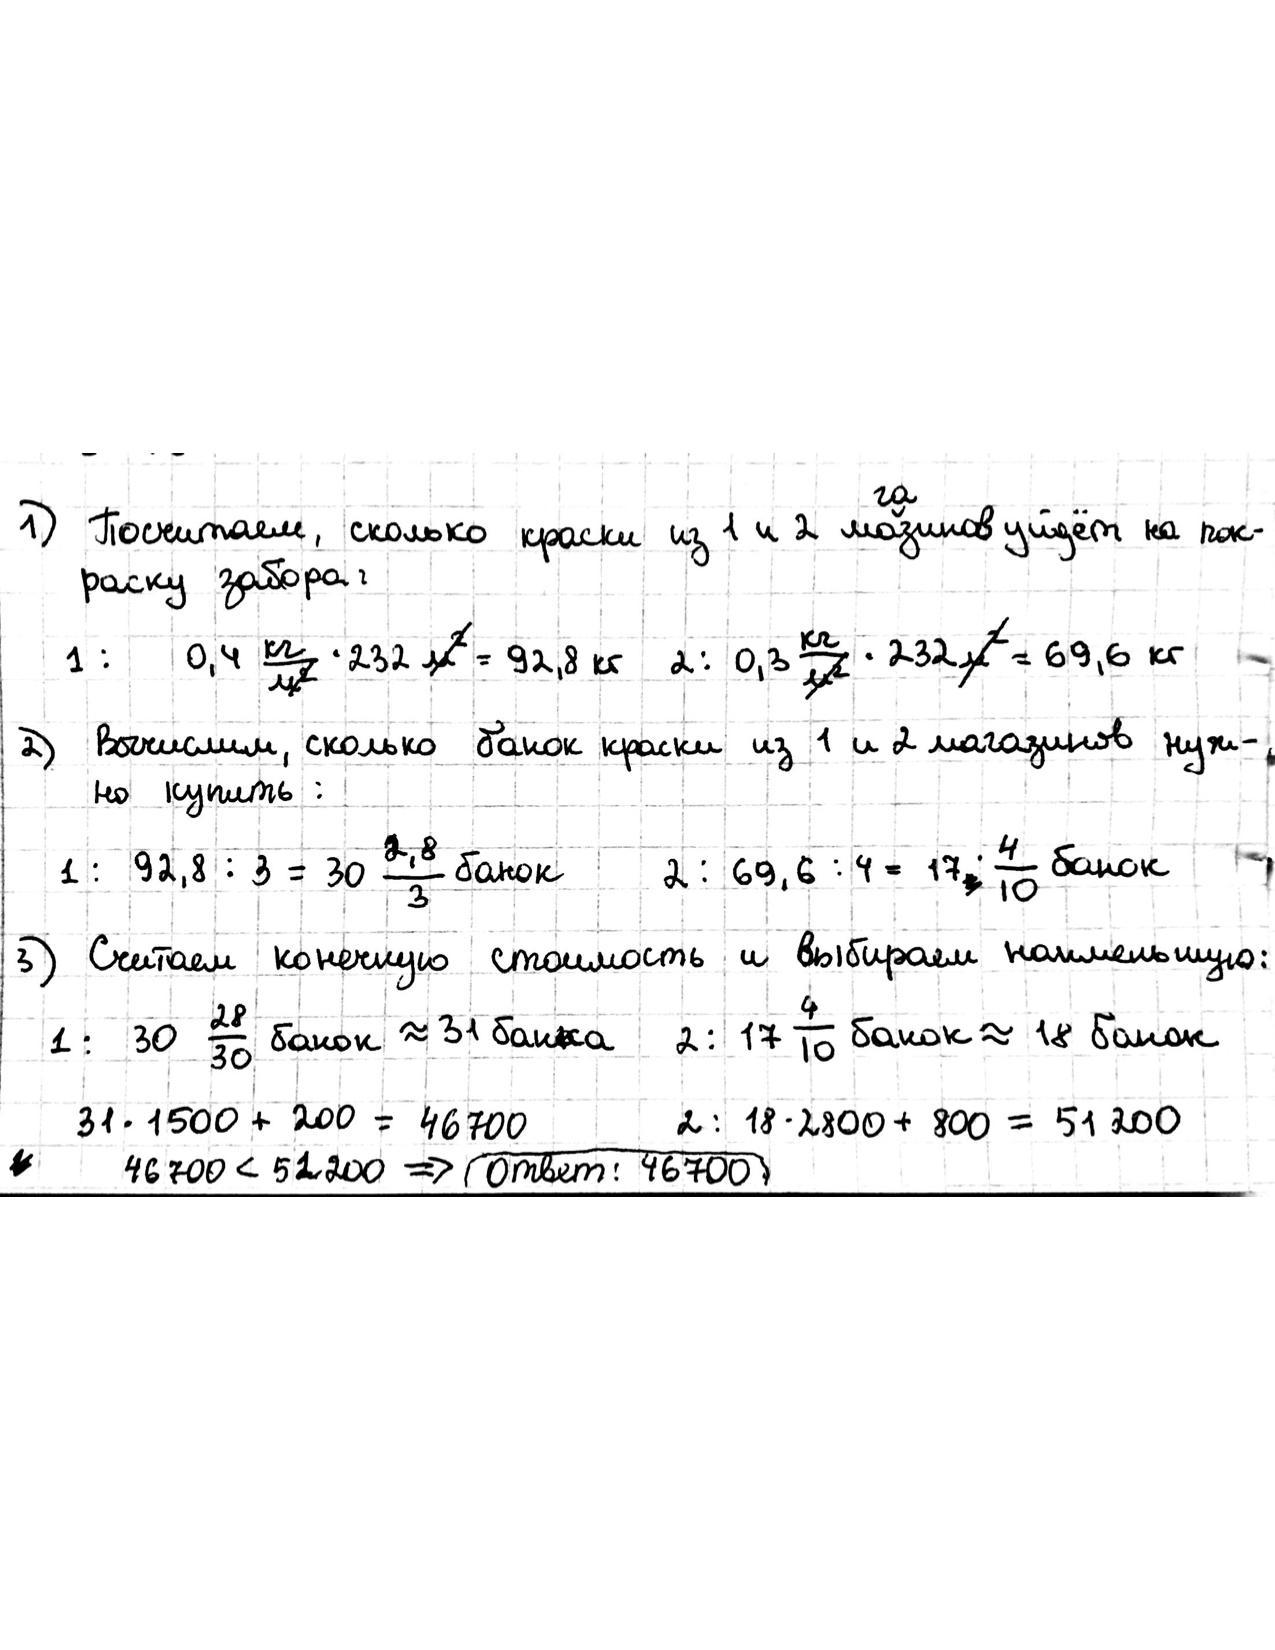 1) Посчитаем, сколько краски из 1 и 2 магазинов уйдёт на пок-
раску забора:
1: 0,4 кг/м² · 232 м² = 92,8 кг 2: 0,3 кг/м² · 232 м² = 69,6 кг
2) Вычислим, сколько банок краски из 1 и 2 магазинов нуж-
но купить:
1: 92,8 : 3 = 30 2,8/3 банок 2: 69,6 : 4 = 17 4/10 банок
3) Считаем конечную стоимость и выбираем наименьшую:
1: 30 28/30 банок ≈ 31 банка 2: 17 4/10 банок ≈ 18 банок
31 · 1500 + 200 = 46700 2: 18 · 2800 + 800 = 51 200
46700 < 51200 => Ответ: 46700